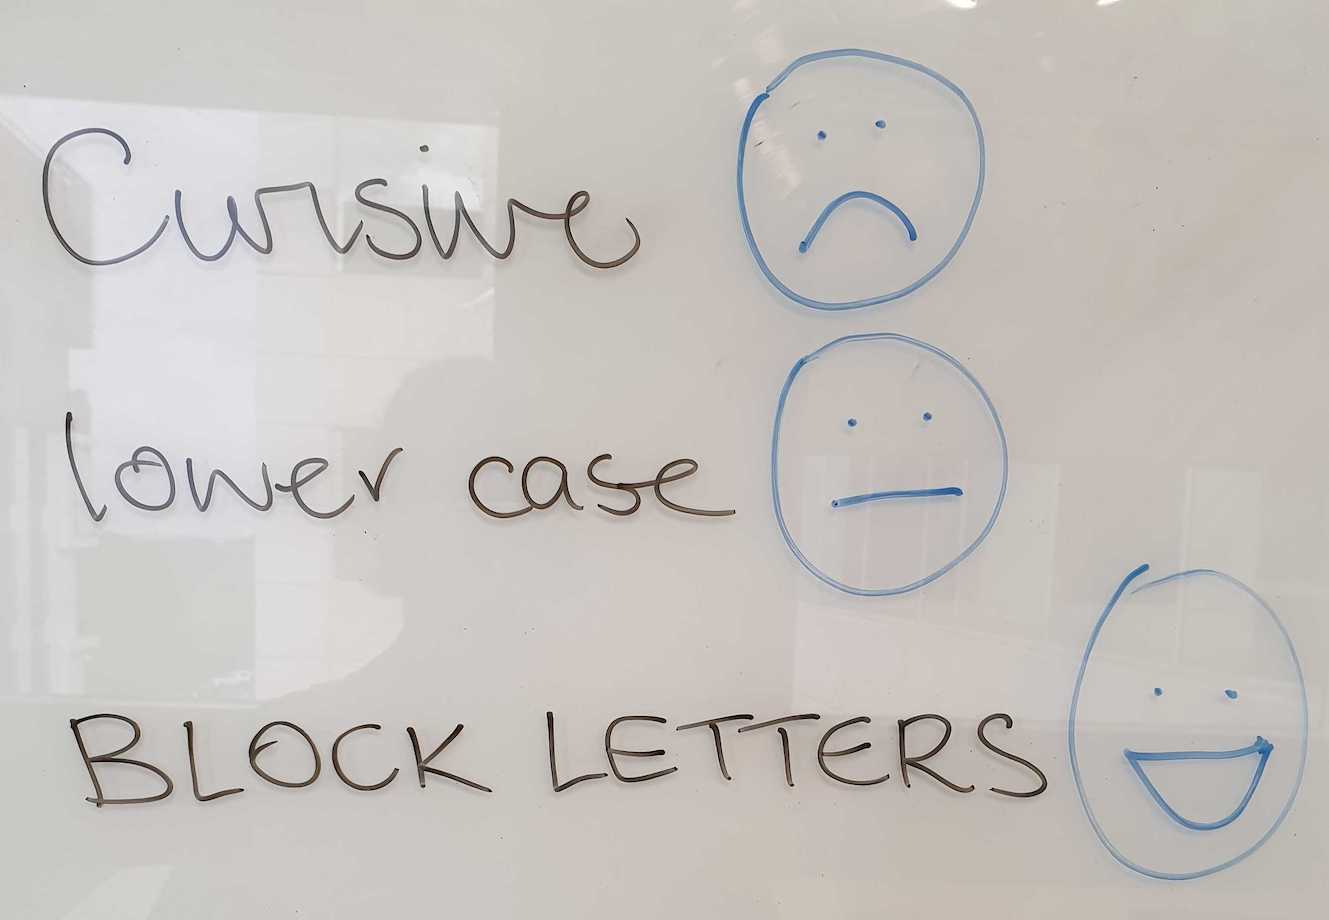 Cursive
lower case
BLOCK LETTERS